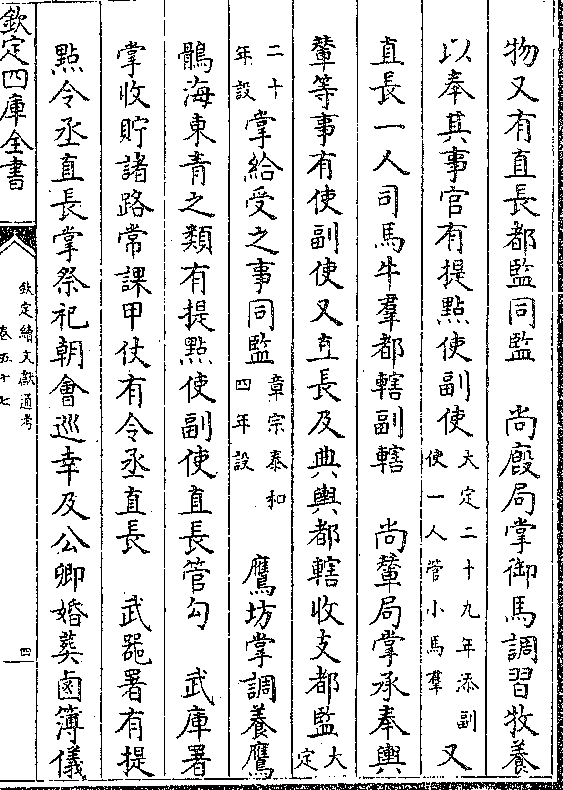 物又有直長都監同監　尚廏局掌御馬調習牧養
以奉其事官有提點使副使大定二十九年添副使一人管小馬羣又
直長一人司馬牛羣都轄副轄　尚輦局掌承奉輿
輦等事有使副使又直長及典輿都轄收支都監大定
二十年設掌給受之事同監章宗泰和四年設　鷹坊掌調養鷹
鶻海東青之類有提點使副使直長管勾　武庫署
掌收貯諸路常課甲仗有令丞直長　武器署有提
點令丞直長掌祭祀朝會巡幸及公卿婚葬鹵簿儀
欽定四庫全書
欽定續文獻通考
卷五十七
四